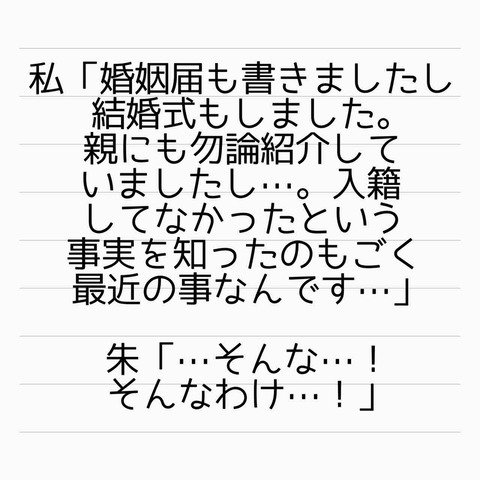 私「婚姻届も書きましたし
結婚式もしました。
親にも勿論紹介して
いましたし…。入籍
してなかったという
事実を知ったのもごく
最近の事なんです…」
朱「…そんな…！
そんなわけ…！」